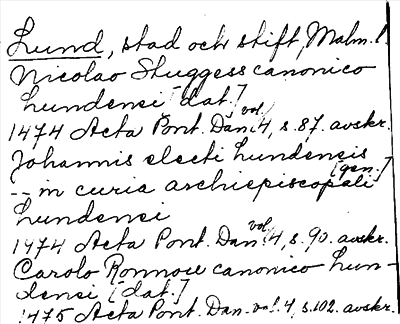 Lund, stad och stift, Malm. l.
Nicolao Skuggess canonico
lundensi [dat.]
1474 Acta Pont. Dan. vol. 4, s. 87. avskr.
Johannis electi lundensis [gen.]
-- in curia archiepiscopali
lundensi
1474 Acta Pont. Dan. vol. 4, s. 90. avskr.
Carolo Ronnow canonico lun-
densi [dat.]
1475 Acta Pont. Dan. vol. 4, s. 102. avskr.